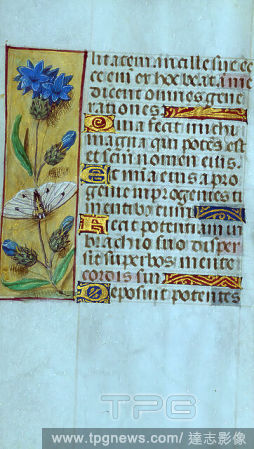 litatem ancille sue ec
ce enī ex hoc beatā me
dicent omnes gene
rationes
Quia fecit michi
magna qui potēs est
et scm̄ nomen eius.
Et mīa eius a pro
genie in progenies ti
mentibus eum
Fecit potentiam in
brachio suo disper
sit superbos mente
cordis sui
Deposuit potentes
TPG
www.tpgnews.com/ 達志影像